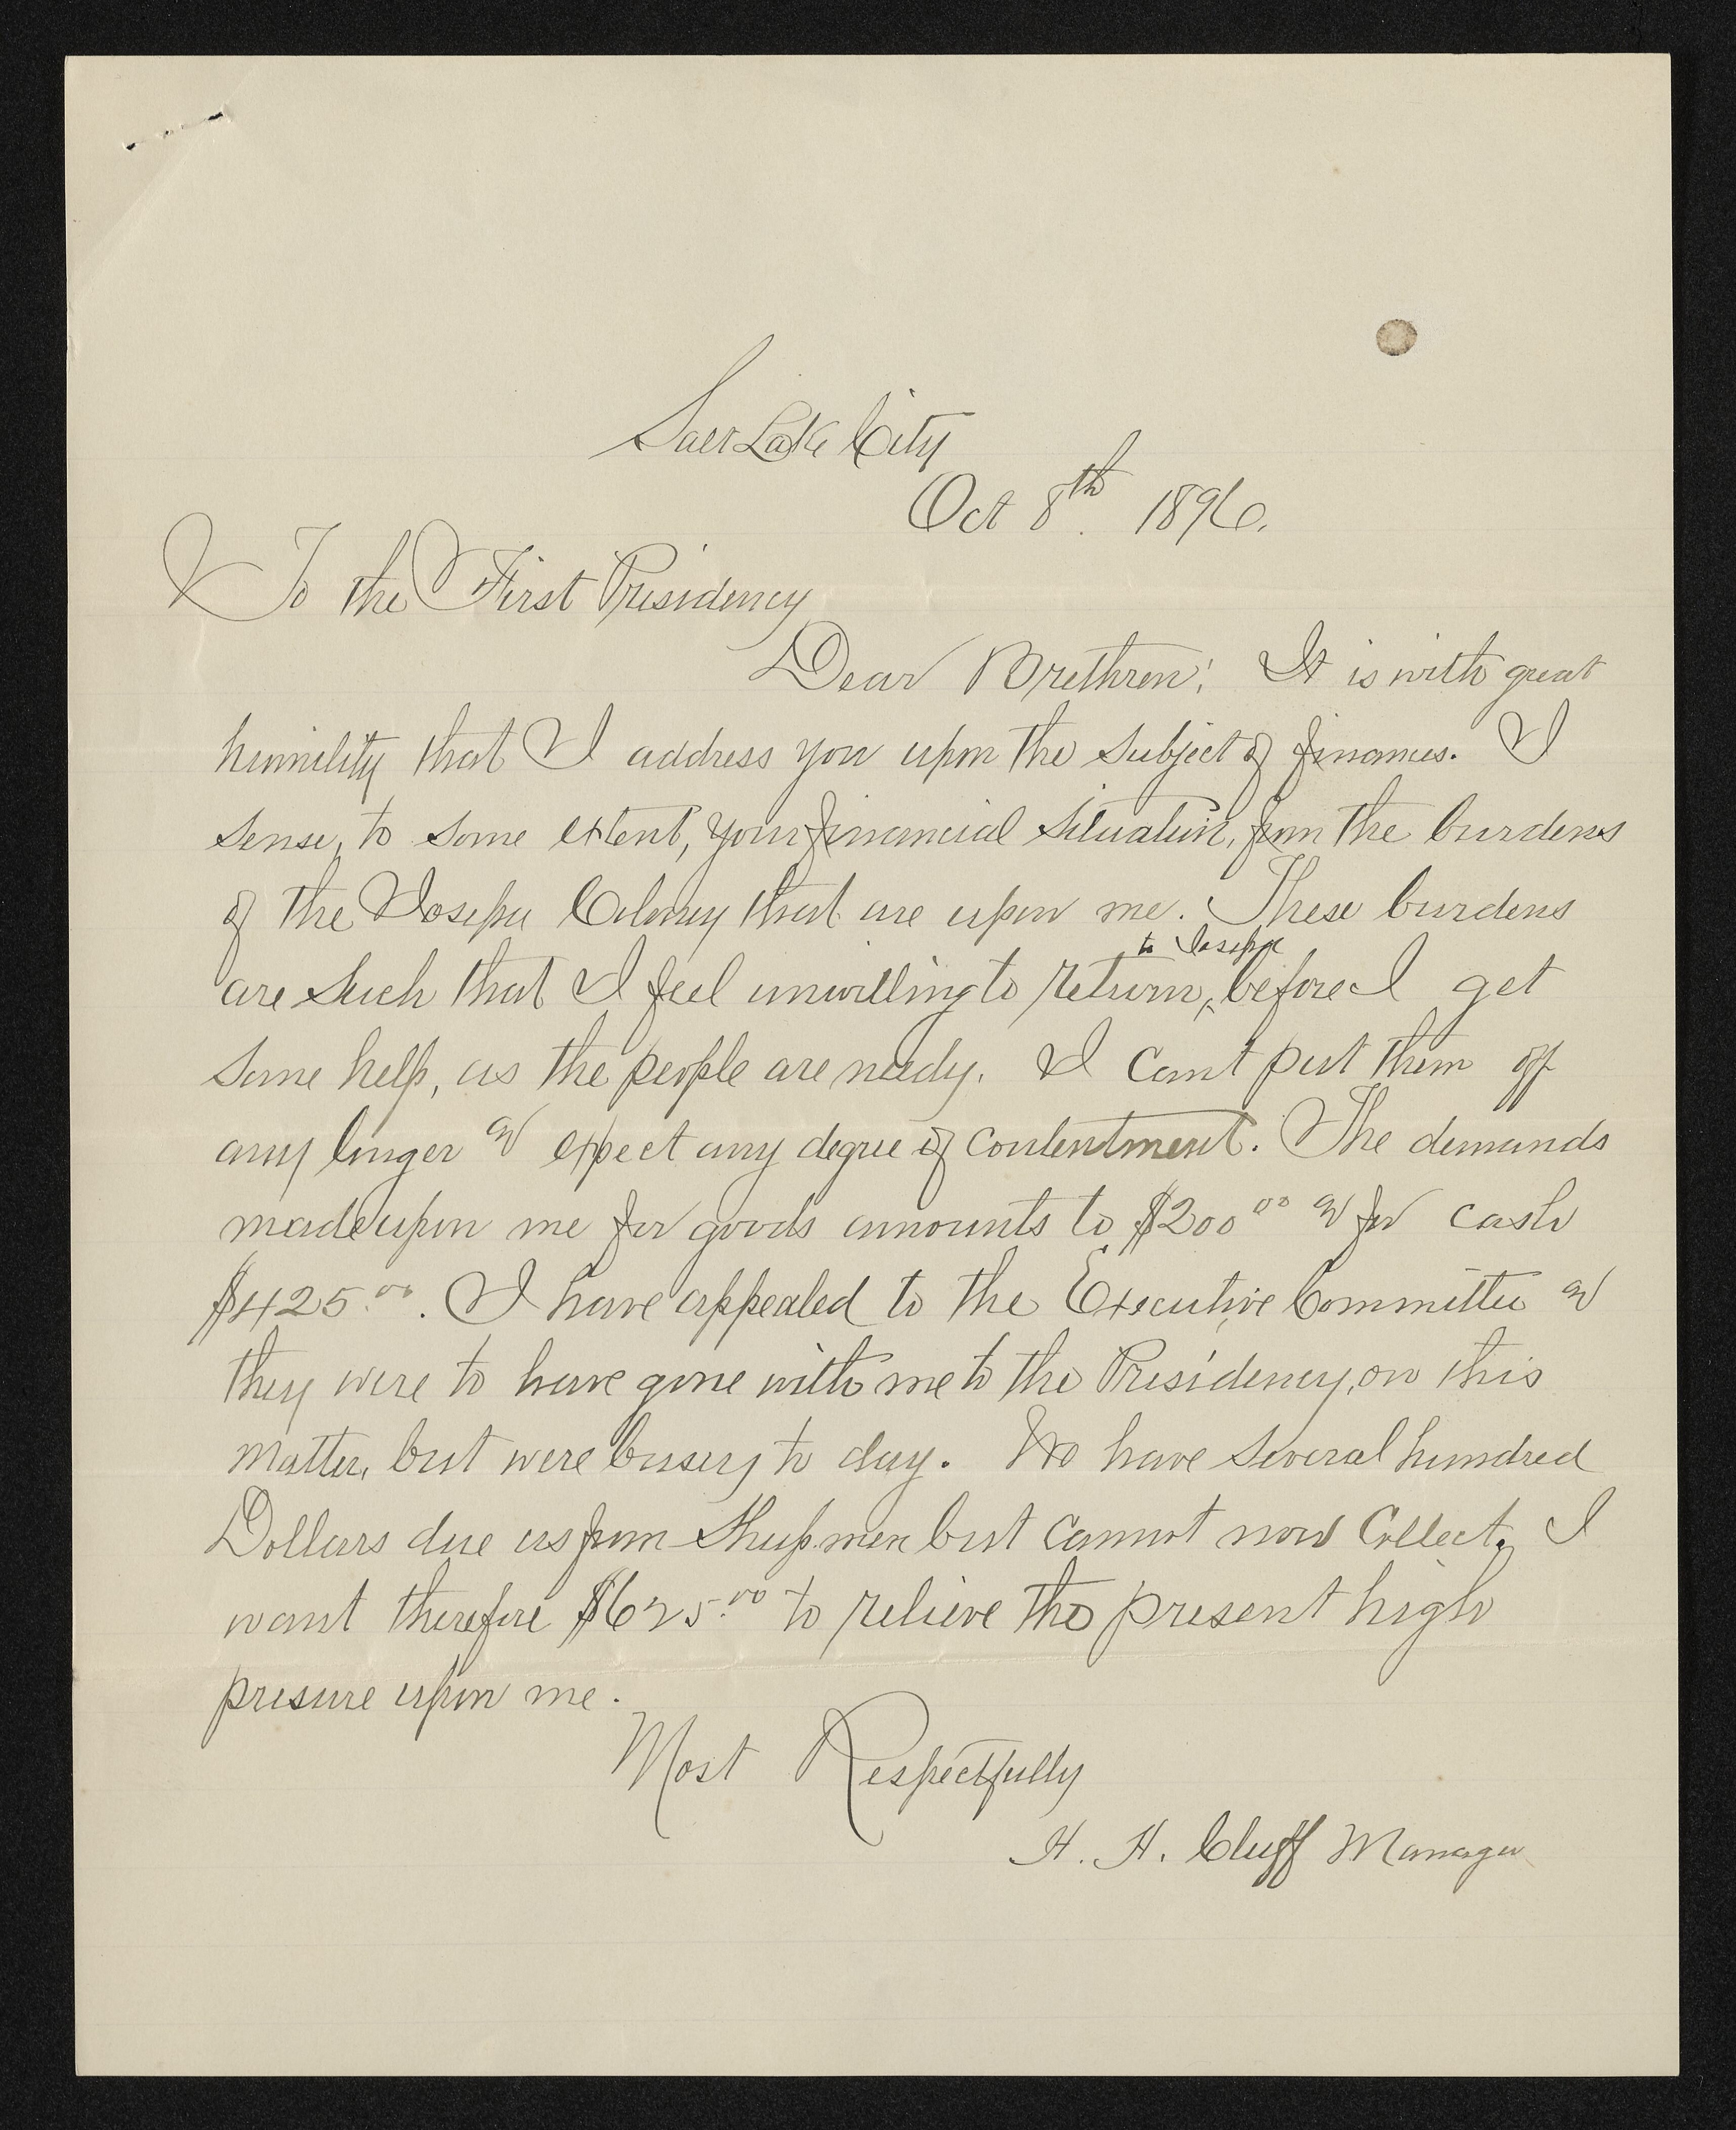 Salt Lake City
Oct 8th 1896.
To the First Presidency
Dear Brethren: It is with great
humility that I address you upon the subject of finances. I
sense, to some extent, your financial situation, from the burdens
of the Iosepa Colony that are upon me. These burdens
to Iosepa
are such that I feel unwilling to return, ^ before I get
some help, as the people are needy. I cant put them off
any longer & expect any degree of contentment. The demands
made upon me for goods amounts to $200.00 & for cash
$425.00. I have appealed to the Executive Committee &
they were to have gone with me to the Presidency, on this
matter, but were busey to day. We have several hundred
Dollars due us from Sheep men but cannot now Collect. I
want therefore $625.00 to relieve the present high
presure upon me.
Most Respectfully
H. H. Cluff Manager